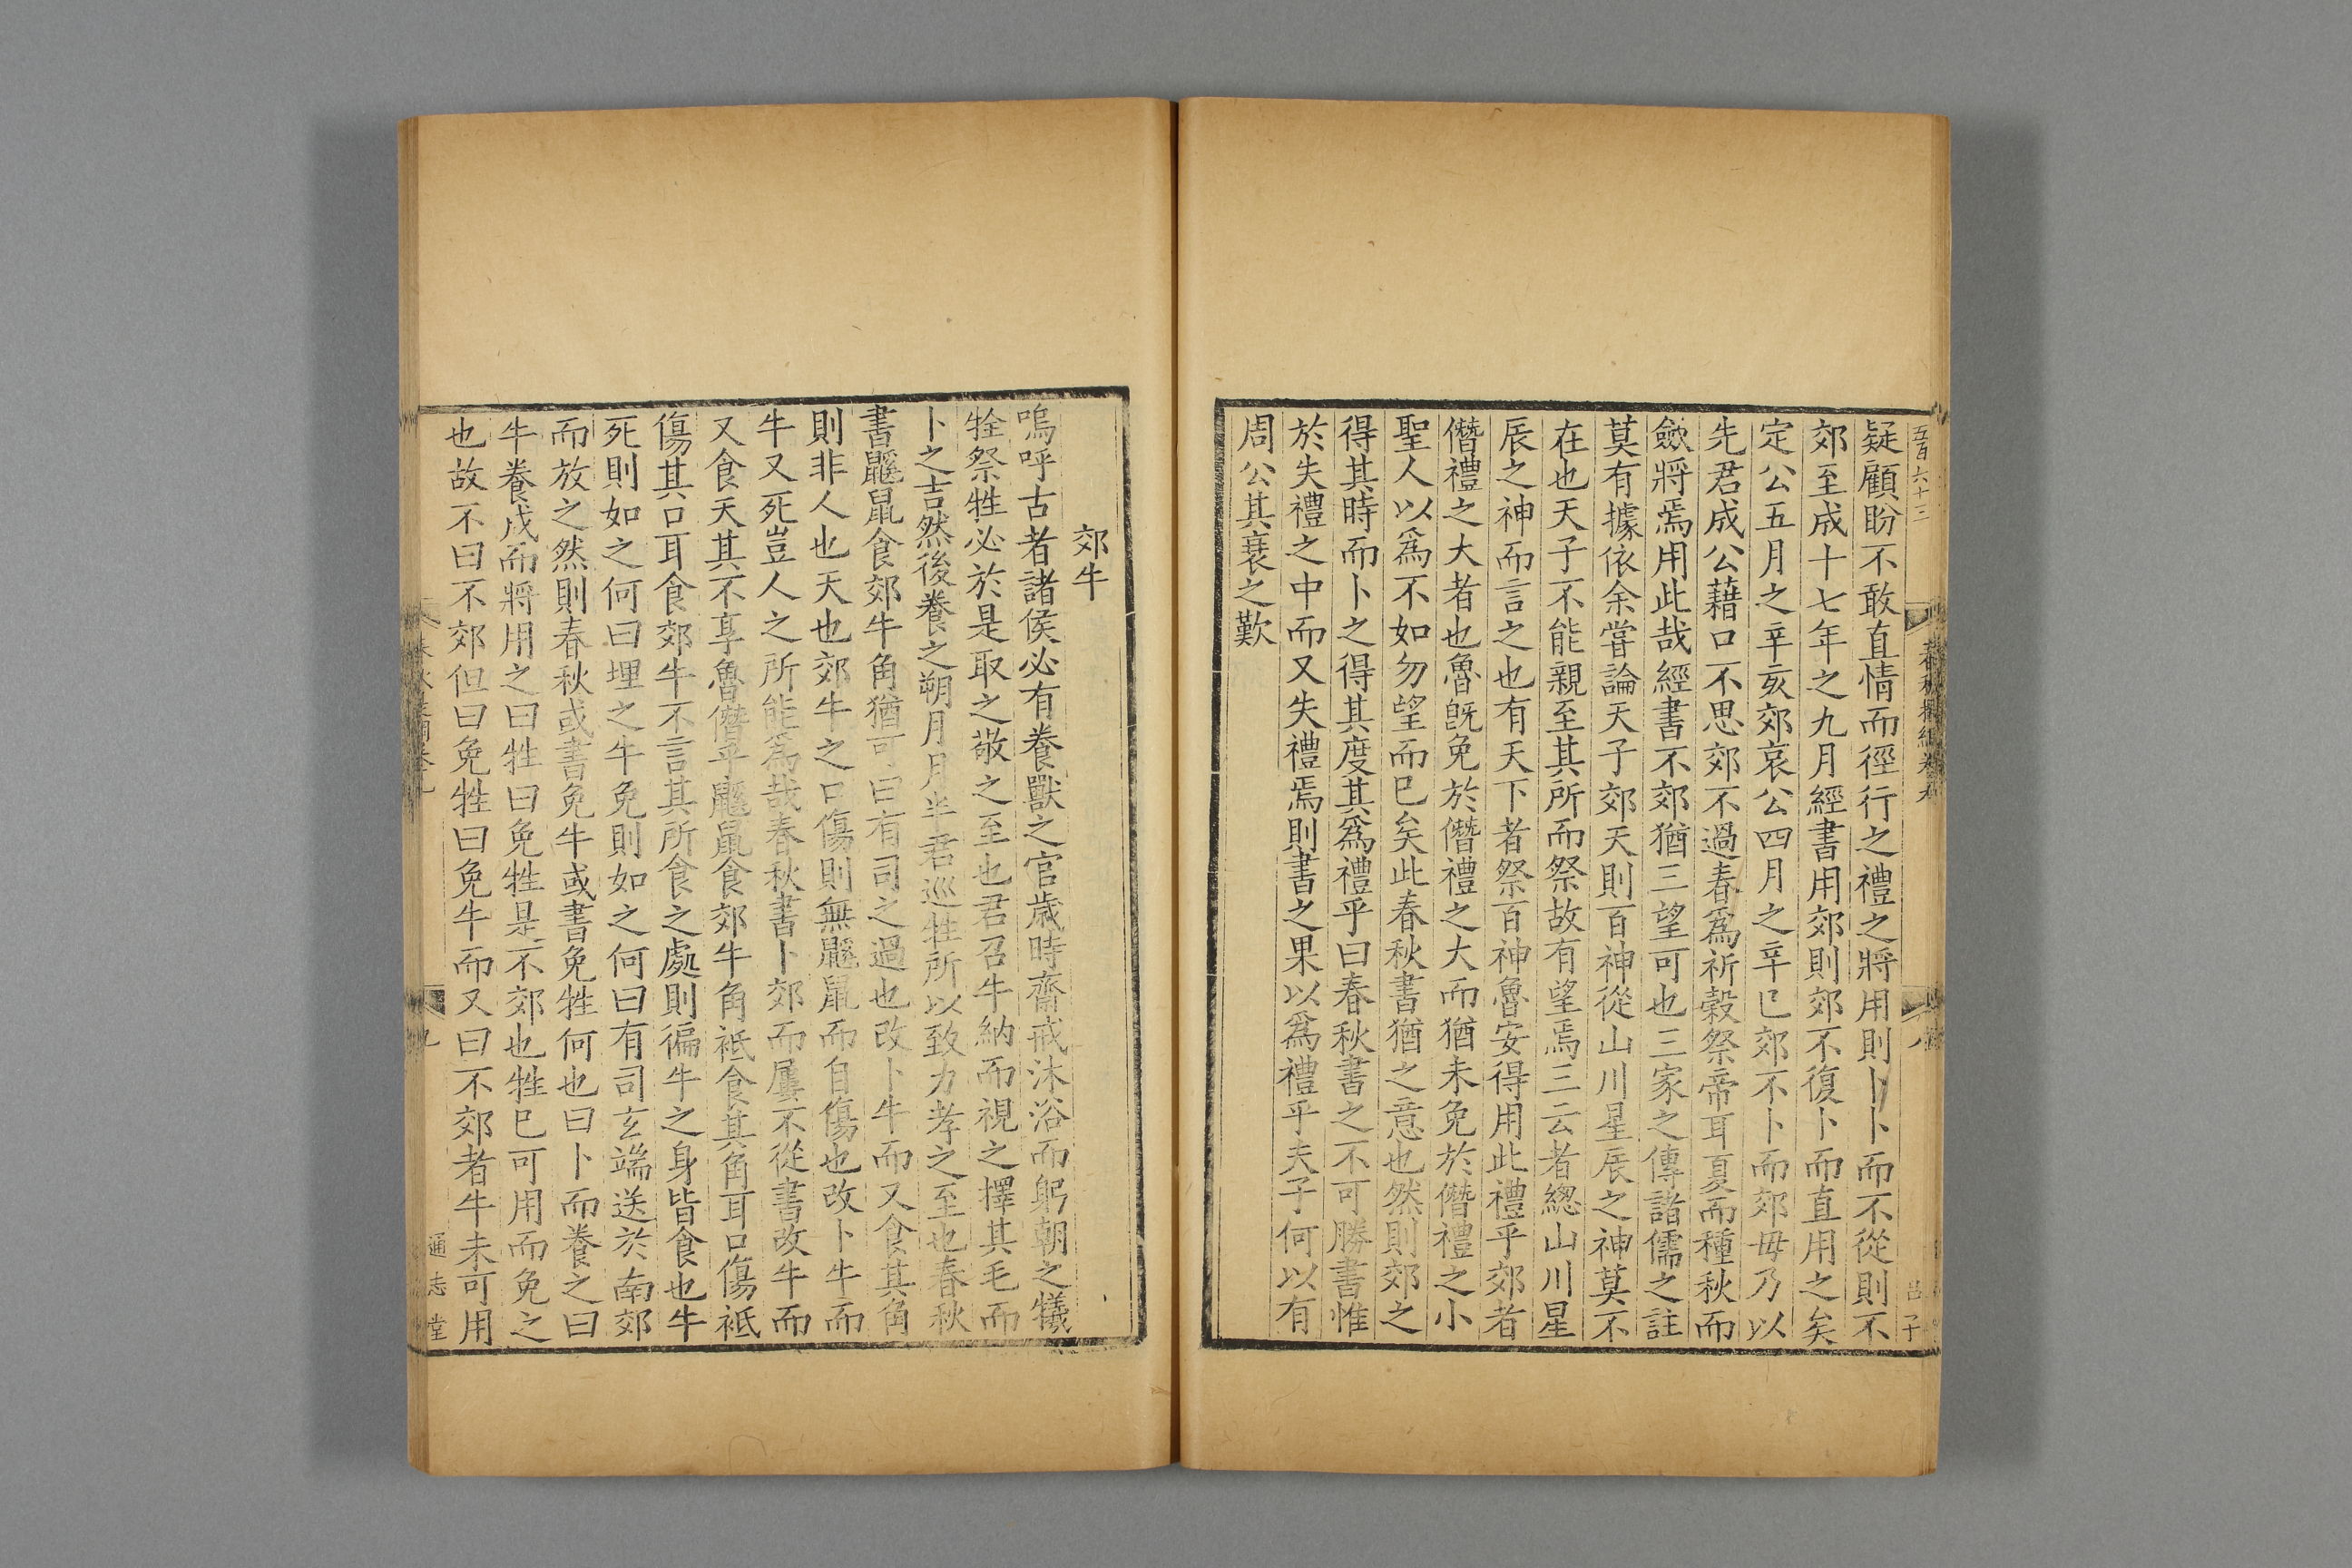 五百六十三
疑顧盼不敢直情而徑行之禮之將用則卜卜而不從則不
郊至成十七年之九月經書用郊則郊不復卜而直用之矣
定公五月之辛亥郊哀公四月之辛巳郊不卜而郊毋乃以
先君成公藉口不思郊不過春爲祈穀祭帝耳夏而種秋而
斂將焉用此哉經書不郊猶三望可也三家之傳諸儒之註
莫有據依余嘗論天子郊天則百神從山川星辰之神莫不
在也天子不能親至其所而祭故有望焉三云者緫山川星
辰之神而言之也有天下者祭百神魯安得用此禮乎郊者
僭禮之大者也魯旣免於僭禮之大而猶未免於僭禮之小
聖人以爲不如勿望而巳矣此春秋書猶之意也然則郊之
得其時而卜之得其度其爲禮乎曰春秋書之不可勝書惟
於失禮之中而又失禮焉則書之果以爲禮乎夫子何以有
周公其衰之歎
郊牛
嗚呼古者諸侯必有養獸之官歲時齋戒沐浴而躬朝之犧
牷祭牲必於是取之敬之至也君召牛納而視之擇其毛而
卜之吉然後養之朔月月半君巡牲所以致力孝之至也春秋
書鼷鼠食郊牛角猶可曰有司之過也改卜牛而又食其角
則非人也天也郊牛之口傷則無鼷鼠而自傷也改卜牛而
牛又死豈人之所能爲哉春秋書卜郊而屢不從書改牛而
又食天其不享魯僭乎鼷鼠食郊牛角衹食其角耳口傷衹
傷其口耳食郊牛不言其所食之處則徧牛之身皆食也牛
死則如之何曰埋之牛免則如之何曰有司玄端送於南郊
而放之然則春秋或書免牛或書免牲何也曰卜而養之曰
牛養成而將用之曰牲曰免牲是不郊也牲巳可用而免之
也故不曰不郊但曰免牲曰免牛而又曰不郊者牛未可用
九
通志堂